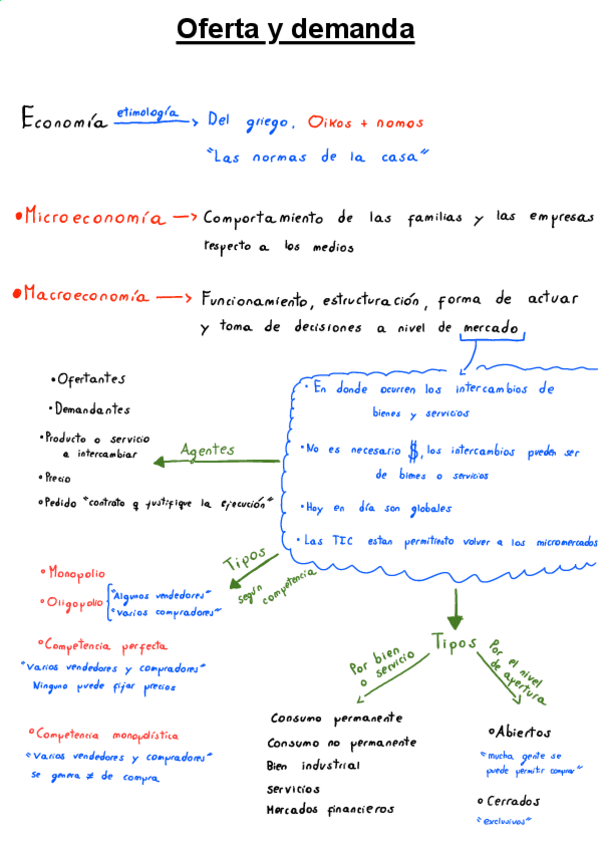 Oferta y demanda
Economía etimología → Del griego, Oikos + nomos
"Las normas de la casa"
• Microeconomía → Comportamiento de las familias y las empresas
respecto a los medios
• Macroeconomía → Funcionamiento, estructuración, forma de actuar
y toma de decisiones a nivel de mercado
• En donde ocurren los intercambios de
bienes y servicios
• No es necesario $, los intercambios pueden ser
de bienes o servicios
• Hoy en día son globales
• Las TIC estan permitiento volver a los micromercados
Agentes
• Ofertantes
• Demandantes
• Producto o servicio
a intercambiar
• Precio
• Pedido "contrato q justifique la ejecución"
Tipos
según competencia
• Monopolio
• Oligopolio
"Algunos vendedores"
"Varios compradores"
• Competencia perfecta
"Varios vendedores y compradores"
Ninguno puede fijar precios
• Competencia monopolística
"Varios vendedores y compradores"
se genera ≠ de compra
Tipos
Por bien
o servicio
Consumo permanente
Consumo no permanente
Bien industrial
servicios
Mercados financieros
Por el nivel
de apertura
• Abiertos
"mucha gente se
puede permitir comprar"
• Cerrados
"exclusivos"